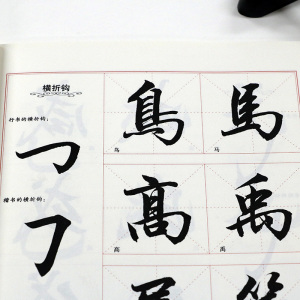 横折钩
行书的横折钩:
楷书的横折钩:
鳥 馬
鸟 马
高 禹
高 禹